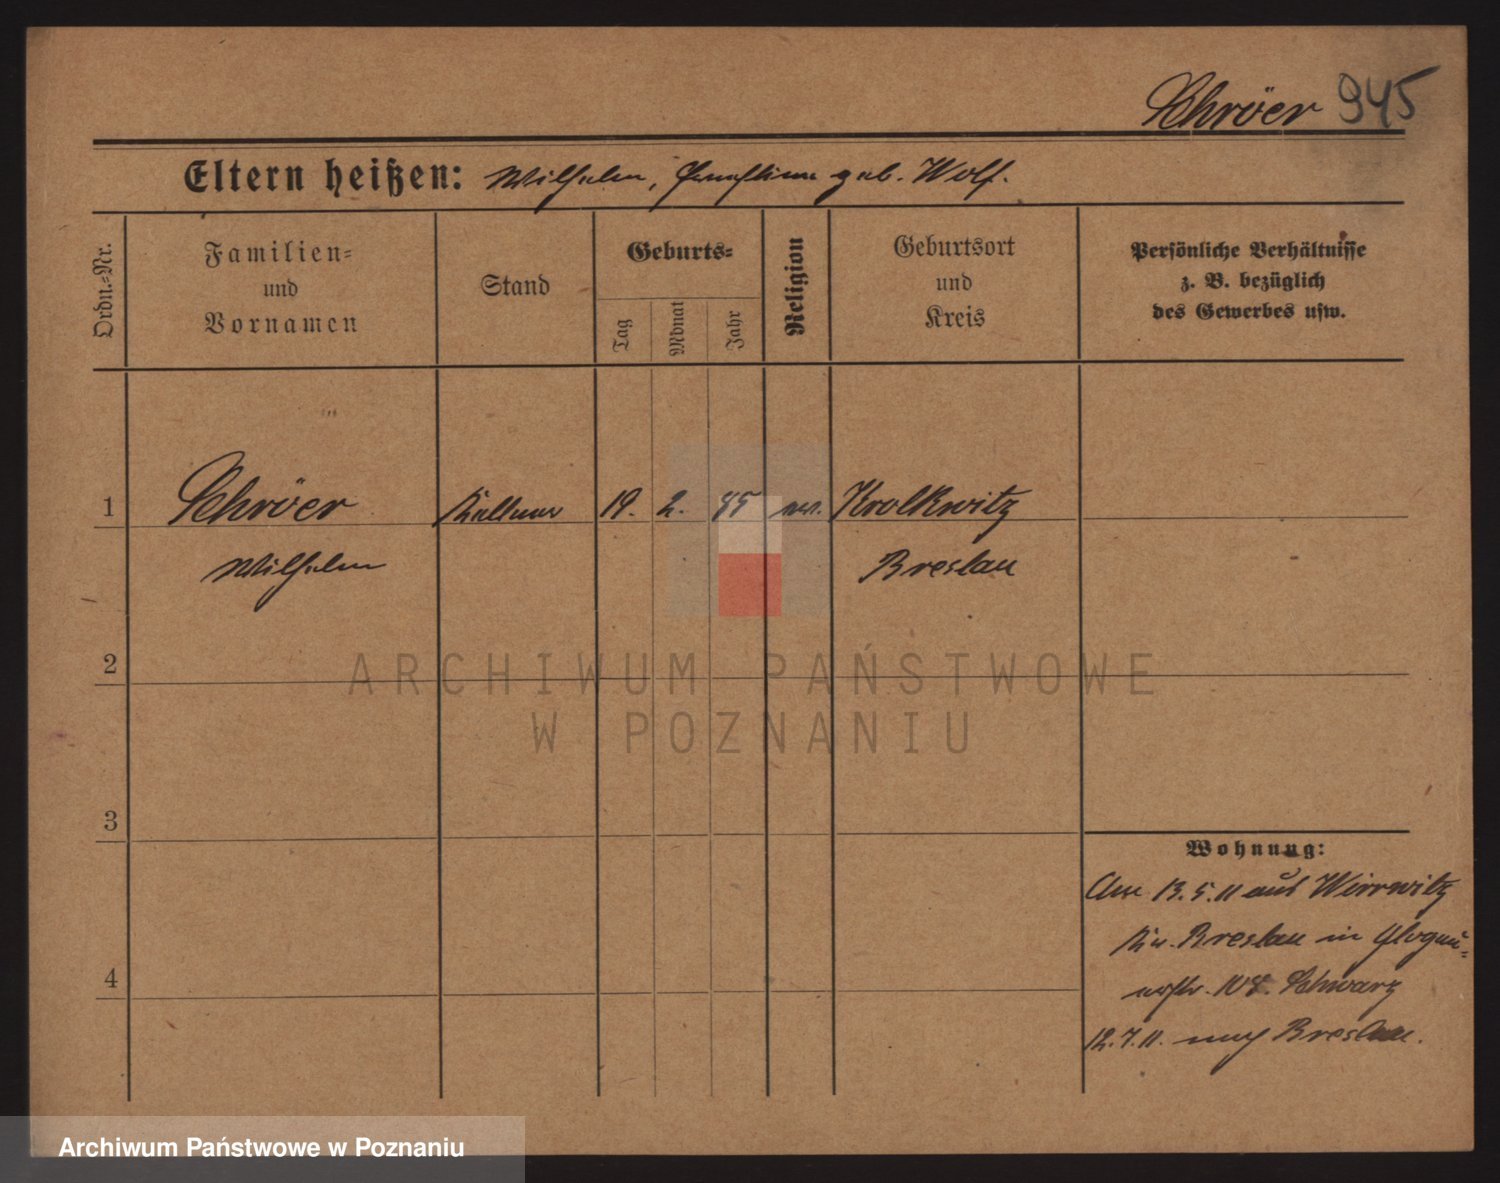 Schröer 945
Eltern heißen: Wilhelm, geb. Wolf.
Ordn.=Nr.
Familien=
und
Vornamen
Stand
Geburts=
Tag
Monat
Jahr
Religion
Geburtsort
und
Kreis
Persönliche Verhältnisse
z. B. bezüglich
des Gewerbes usw.
1 Schröer Kellner 19. 2. 95 ev. Krolkwitz
Wilhelm Breslau
2
3
4
Wohnung:
Am 13.5.11 aus Wirrwitz
Kr. Breslau in Glogau=
erstr. 108. Schwarz
12.7.11. nach Breslau.
ARCHIWUM PAŃSTWOWE
W POZNANIU
Archiwum Państwowe w Poznaniu